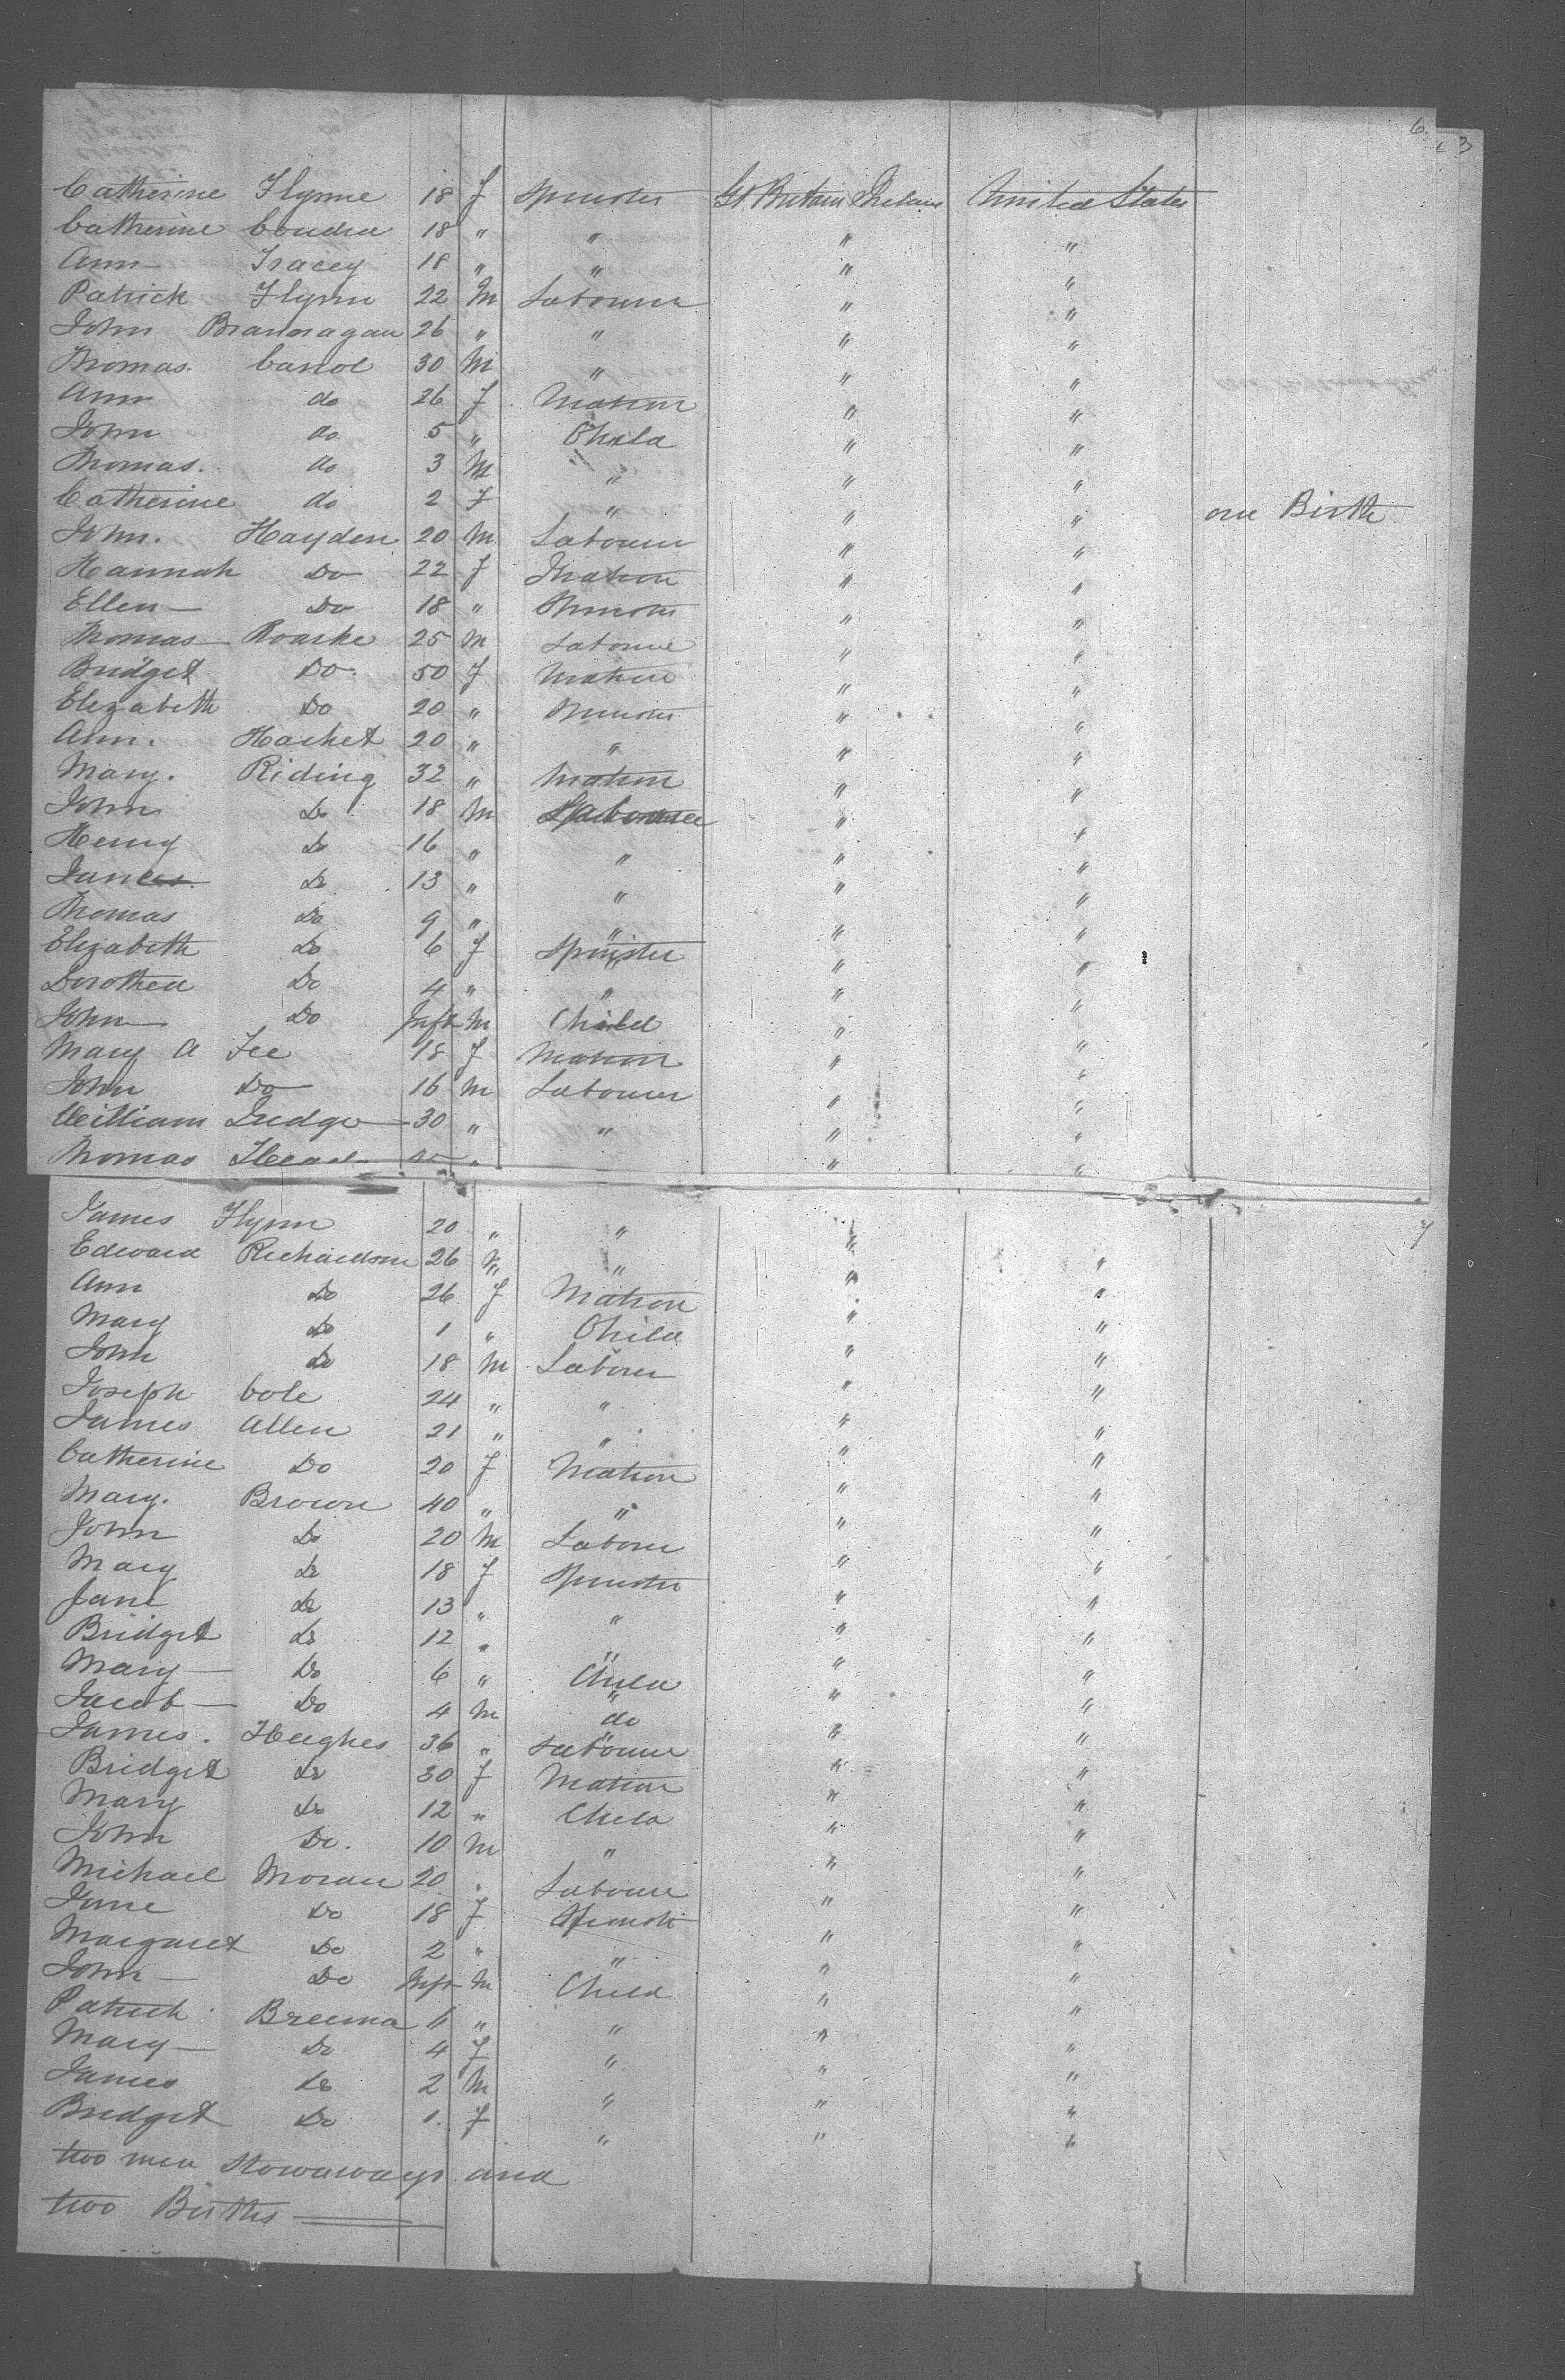 6.
3
Catherine Flynne 18 f Spinster Gt. Britain Ireland United States
Catherine 18 " " " "
Ann Tracey 18 " " " "
Patrick Flynn 22 M Labourer " "
John Brannagan 26 " " " "
Thomas. Carrol 30 M " " "
Ann do 26 f Matron " "
John do 5 " Child " "
Thomas. do 3 M " " "
Catherine do 2 f " " " one Birth
John. Hayden 20 M Labourer " "
Hannah Do 22 f Matron " "
Ellen Do 18 " Spinster " "
Thomas Roarke 25 M Labourer " "
Bridget Do 50 f Matron " "
Elizabeth Do 20 " Spinster " "
Ann. Hacket 20 " " " "
Mary. Riding 32 " Matron " "
John Do 18 M Labourer " "
Henry Do 16 " " " "
James Do 13 " " " "
Thomas Do 9 " " " "
Elizabeth Do 6 f Spinster " "
Dorothea Do 4 " " " "
John Do Inft M Child " "
Mary A Fee 18 f Matron " "
John Do 16 M Labourer " "
William Judge 30 " " " "
Thomas " " "
7
James Flynn 20 " " "
Edward Richardson 26 M " " "
Ann Do 26 f Matron " "
Mary Do 1 " Child " "
John Do 18 M Laborer " "
Joseph Cole 24 " " " "
James Allen 21 " " " "
Catherine Do 20 f Matron " "
Mary. Brown 40 " " " "
John Do 20 M Laborer " "
Mary Do 18 f Spinster " "
Jane Do 13 " " " "
Bridget Do 12 " " " "
Mary Do 6 " Child " "
Jacob Do 4 M do " "
James. Hughes 36 " Labourer " "
Bridget Do 30 f Matron " "
Mary Do 12 " Child " "
John Do. 10 M " " "
Michael Moran 20 " Labourer " "
Jane Do 18 f Spinster " "
Margaret Do 2 " " " "
John Do Inft M Child " "
Patrick Breema 11 " " " "
Mary Do 4 f " " "
James Do 2 M " " "
Bridget Do 1. f " " "
two men stowaways and
two Births